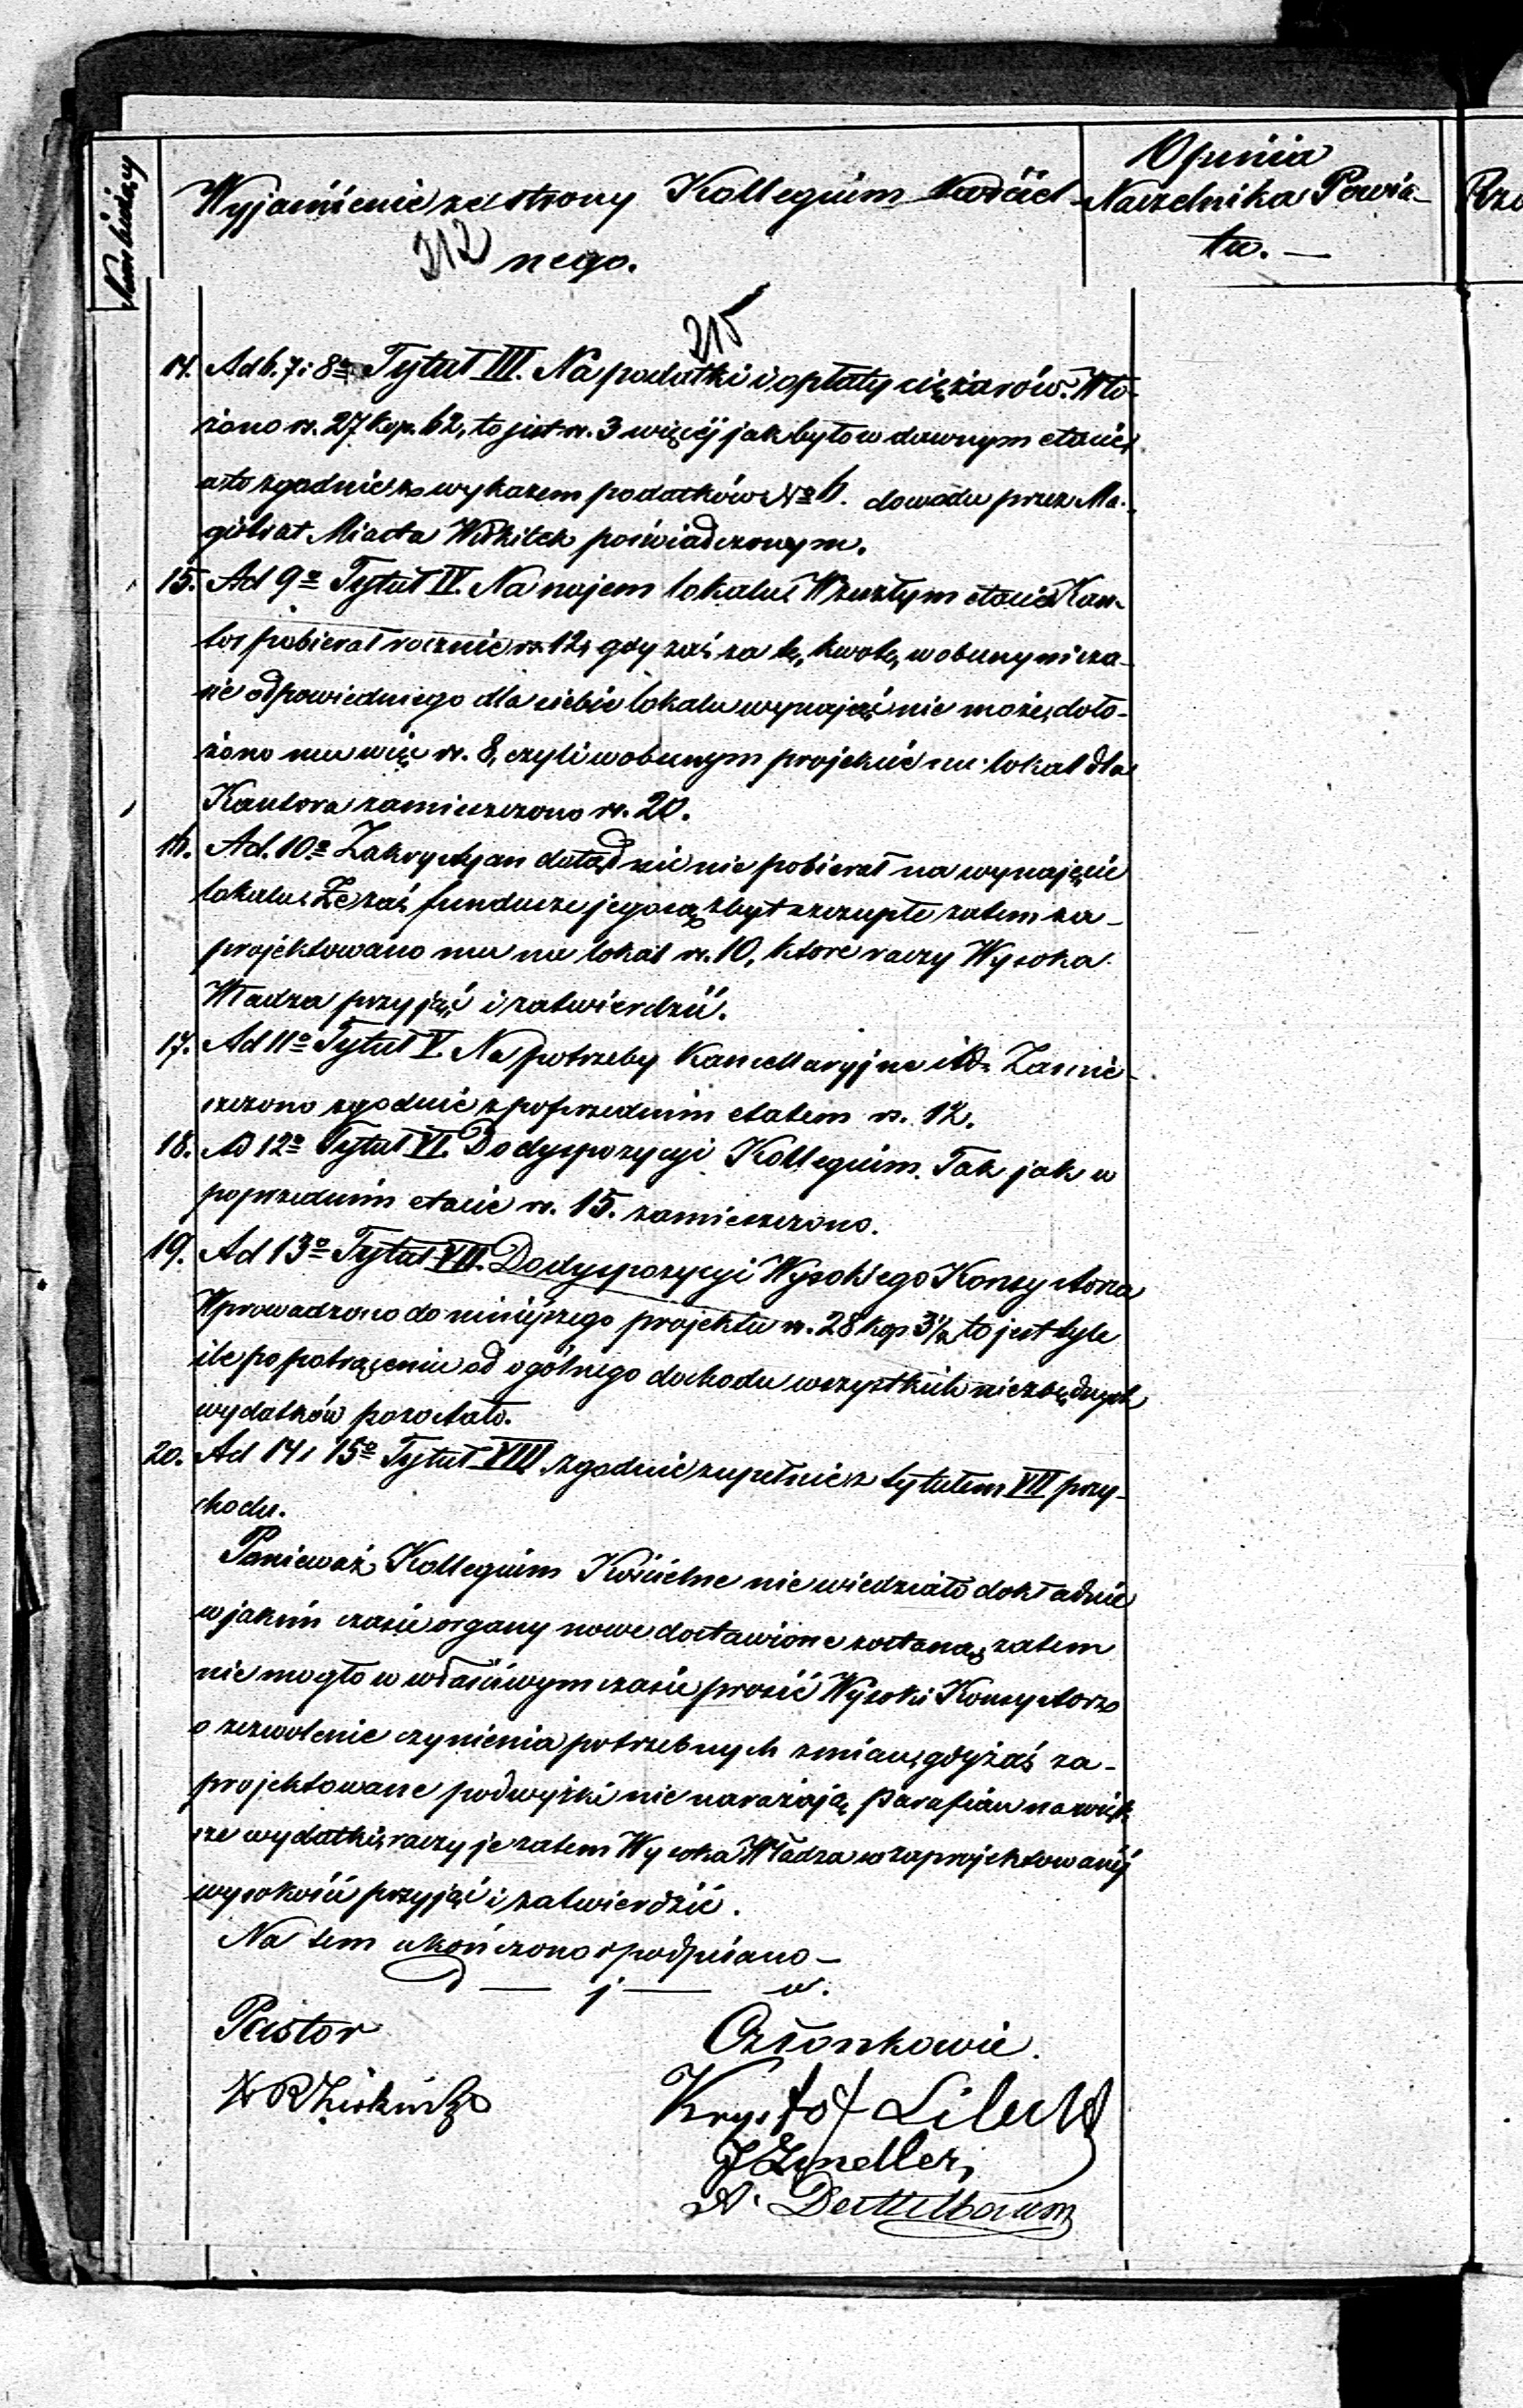 Num bieżący
Wyjaśnienie ze strony Kollegium Kościel-
nego.
212
Opinia
Naczelnika Powia-
tu. —
215
14. Ad 6. 7 i 8o Tytuł III. Na podatki i opłaty ciężarów. Wło-
żono rs. 27 kop. 62, to jest rs. 3 więcej jak było w dawnym etacie,
a to zgodnie z wykazem podatków No 6. dowodu przez Ma-
gistrat Miasta Wiskitek poświadczonym.
15. Ad 9o Tytuł IV. Na najem lokalu. W zeszłym etacie Kan-
tor pobierał rocznie rs. 12, gdy zaś za tę kwotę w obecnym cza-
sie odpowiedniego dla siebie lokalu wynająć nie może, doło-
żono mu więc rs. 8, czyli w obecnym projekcie na lokal dla
Kantora zamieszczono rs. 20.
16. Ad. 10o Zakrystyan dotąd nic nie pobierał na wynajęcie
lokalu. Że zaś fundusze jego są zbyt szczupłe zatem za-
projektowano mu na lokal rs. 10, które raczy Wysoka
Władza przyjąć i zatwierdzić.
17. Ad 11o Tytuł V. Na potrzeby Kancellaryjne itd. Zamie-
szczono zgodnie z poprzednim etatem rs. 12.
18. Ad 12o Tytuł VI. Do dyspozycyi Kollegium. Tak jak w
poprzednim etacie rs. 15. zamieszczono.
19. Ad 13o Tytuł VII. Do dyspozycyi Wysokiego Konsystorza
Wprowadzono do niniejszego projektu rs. 28 kop 3½ to jest tyle
ile po potrąceniu od ogólnego dochodu wszystkich niezbędnych
wydatków pozostało.
20. Ad 14 i 15o Tytuł VIII zgodnie zupełnie z tytułem VII przy-
chodu.
Ponieważ Kollegium Kościelne nie wiedziało dokładnie
w jakim czasie organy nowe dostawione zostaną, zatem
nie mogło w właściwym czasie prosić Wysoki Konsystorz
o zezwolenie czynienia potrzebnych zmian, gdy zaś za-
projektowane podwyżki nie narażają Parafian na więk-
sze wydatki, raczy je zatem Wysoka Władza w zaprojektowanej
wysokości przyjąć i zatwierdzić.
Na tem ukończono i podpisano —
d — j — w.
Pastor
Członkowie.
Krysztof
J
A.